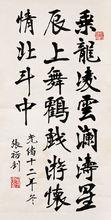 乘龍凌雲瀾濤星
辰上舞鶴戲游懷
情北斗中
光緒十二年冬
張裕釗